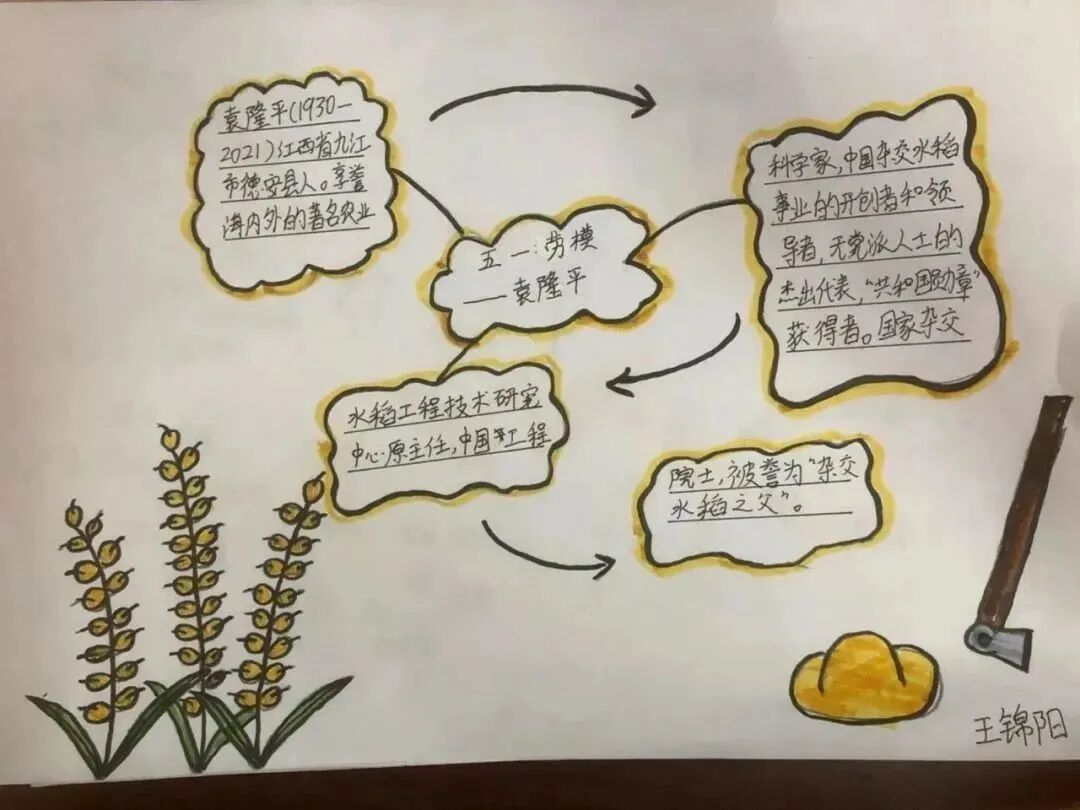 五一:劳模
——袁隆平
袁隆平(1930—
2021)江西省九江
市德安县人。享誉
海内外的著名农业
科学家,中国杂交水稻
事业的开创者和领
导者,无党派人士的
杰出代表,“共和国勋章”
获得者。国家杂交
水稻工程技术研究
中心原主任,中国工程
院士,被誉为“杂交
水稻之父”。
王锦阳